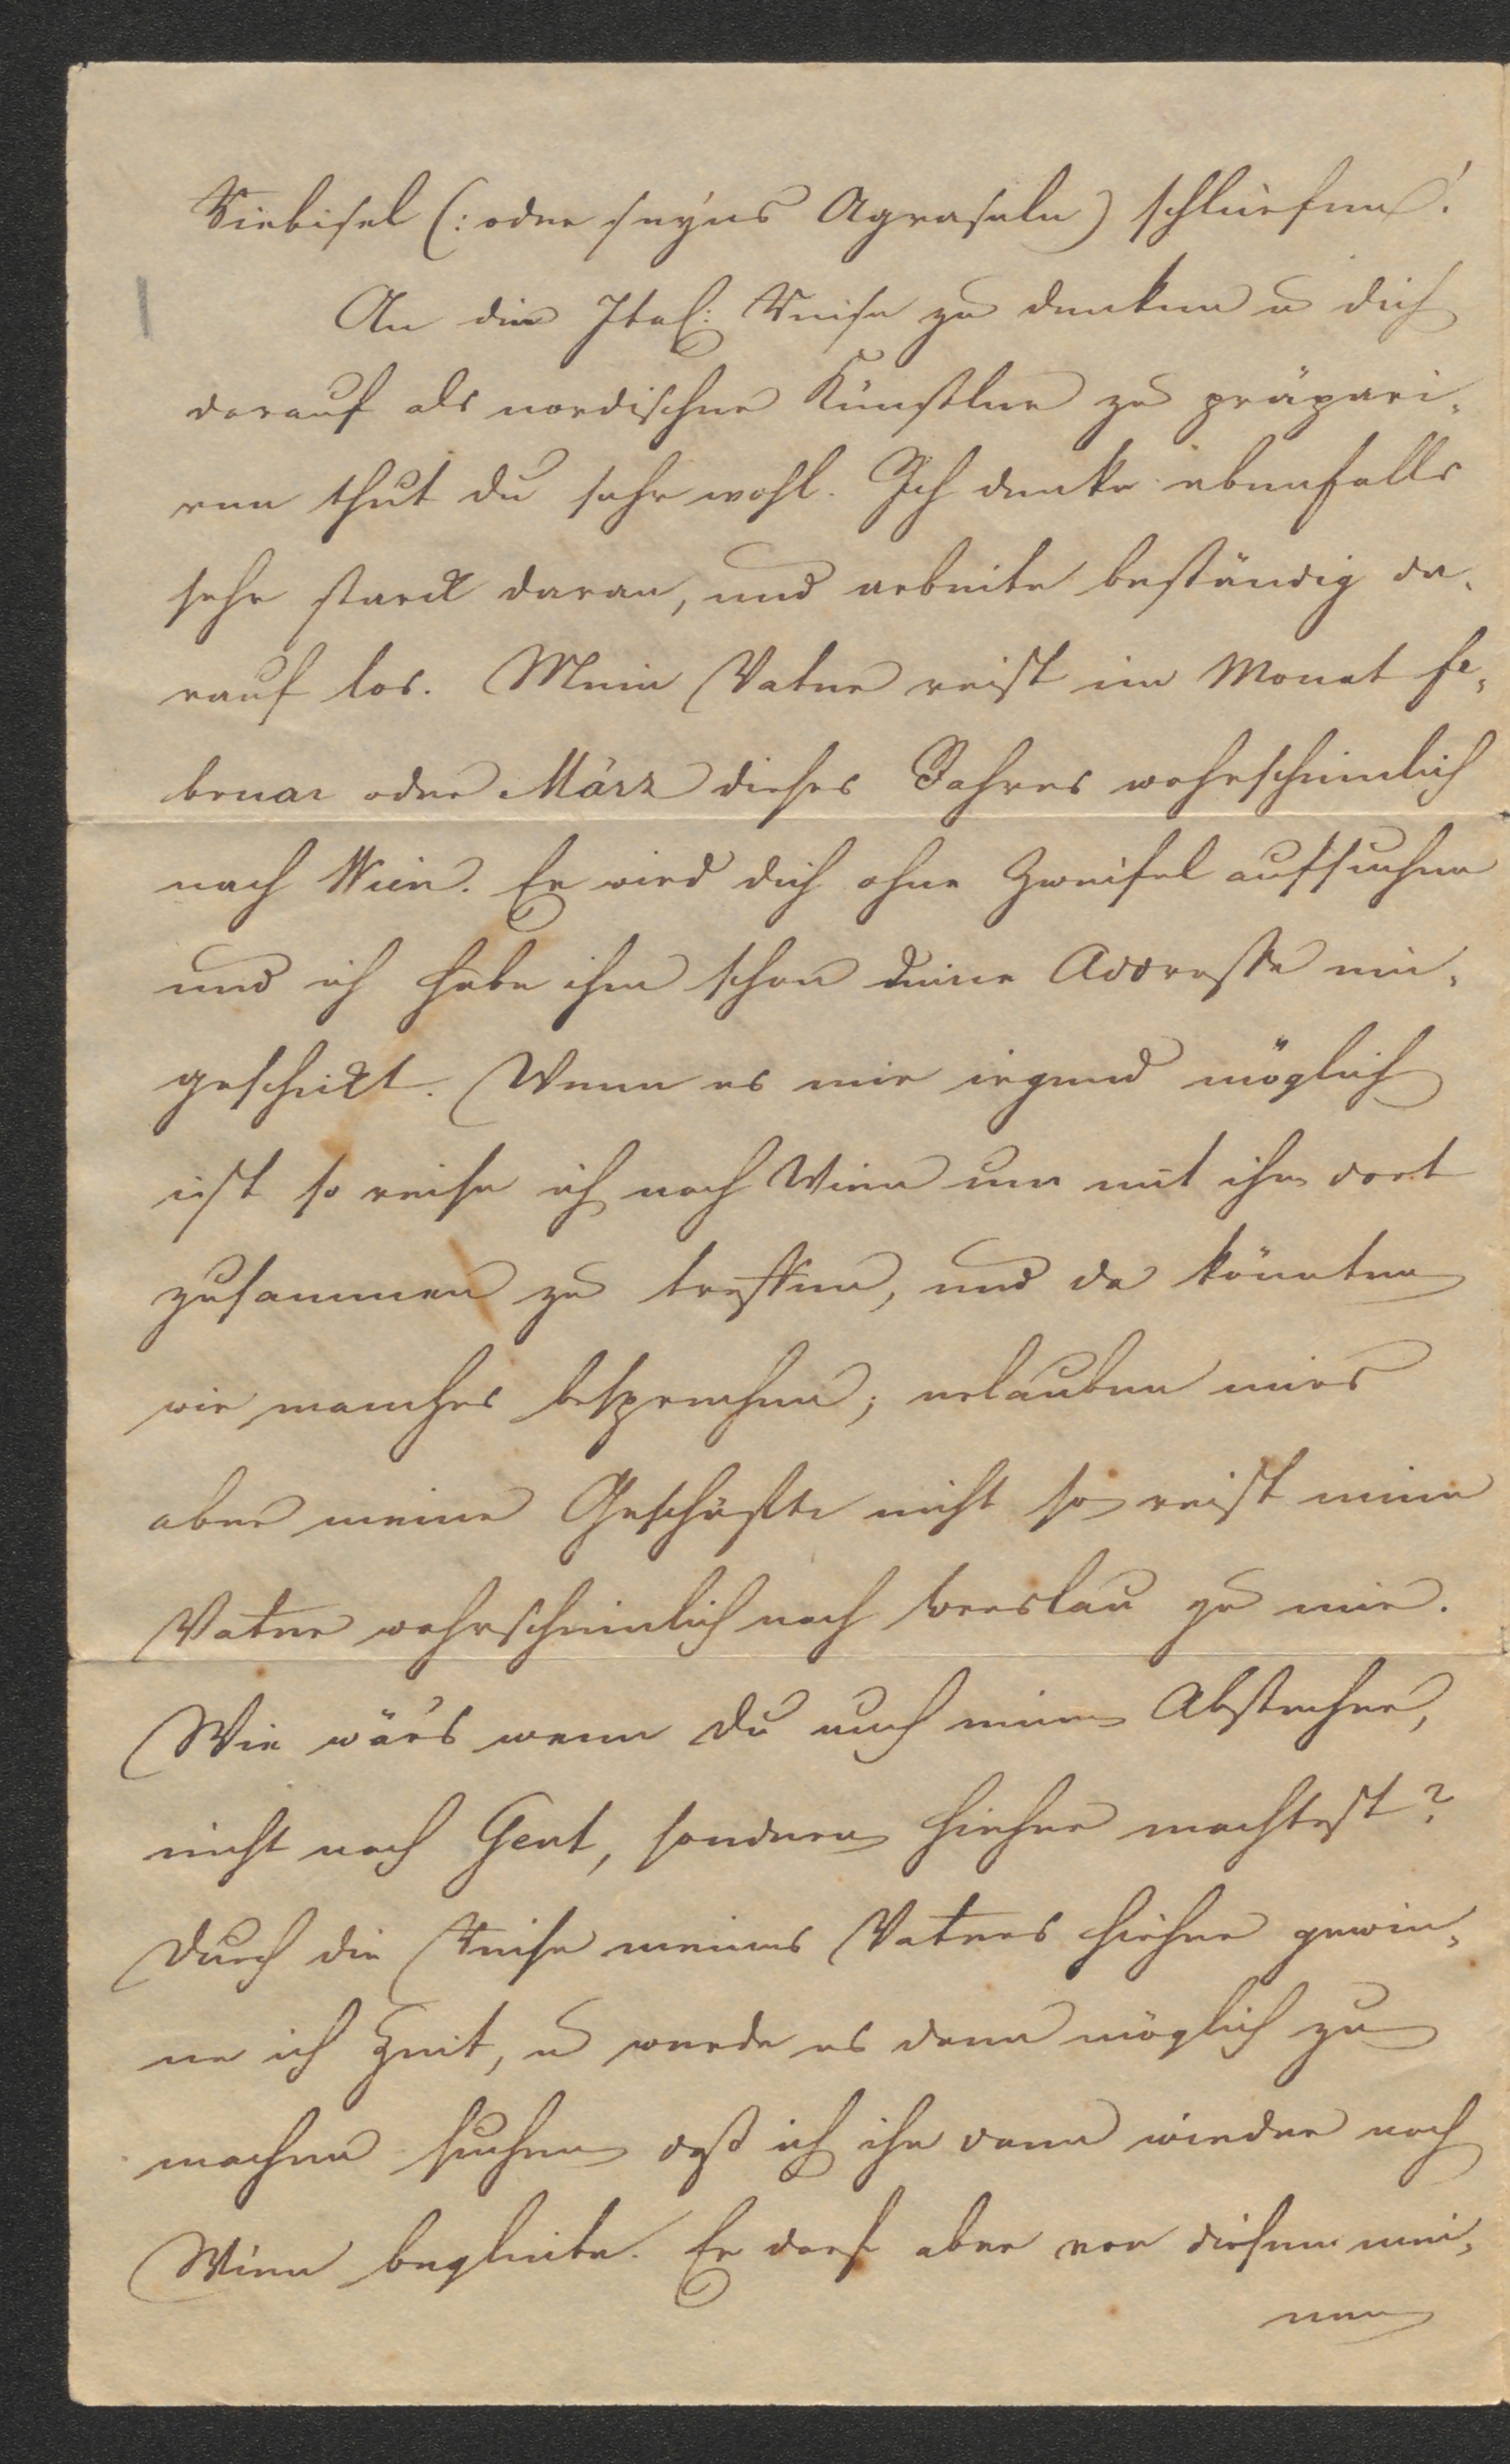 Ribisel (: oder seyns Agraseln) schliefen!
An die Ital: Reise zu denken u dich
darauf als nordischer Künstler zu präpari-
ren thut du sehr wohl. Ich denke ebenfalls
sehr starck daran, und arbeite beständig da-
rauf los. Mein Vater reist im Monat Fe-
bruar oder März dieses Jahres wahrscheinlich
nach Wien. Er wird dich ohne Zweifel aufsuchen
und ich habe ihm schon deine Addresse ein-
geschickt. Wenn es mir irgend möglich
ist so reise ich nach Wien um mit ihm dort
zusammen zu treffen, und da könnten
wir manches besprechen; erlauben mirs
aber meine Geschäfte nicht so reist mein
Vater wahrscheinlich nach Breslau zu mir.
Wie wärs wenn du auch einen Abstecher,
nicht nach Gent, sondern hieher machtest?
Durch die Reise meines Vaters hieher gewin-
ne ich Zeit, u werde es dann möglich zu
machen suchen daß ich ihn dann wieder nach
Wien begleite. Er darf aber von diesem mei-
nen